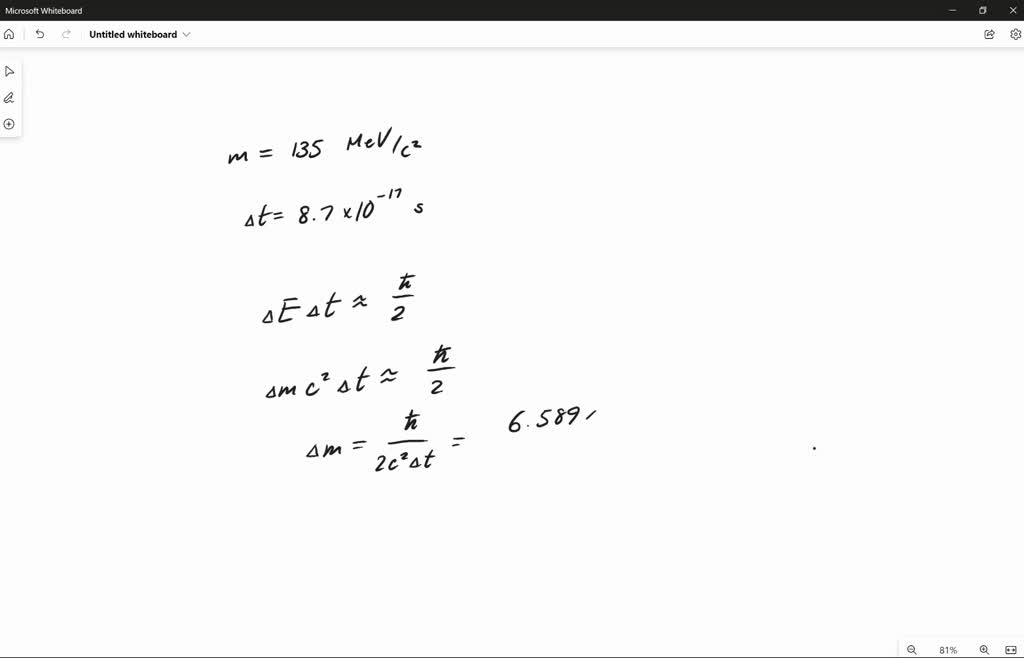 Microsoft Whiteboard
Untitled whiteboard
m = 135 MeV/c²
Δt = 8.7 ×10⁻¹⁷ s
ΔE Δt ≈ ħ/2
Δm c² Δt ≈ ħ/2
Δm = ħ/2c²Δt = 6.589
81%